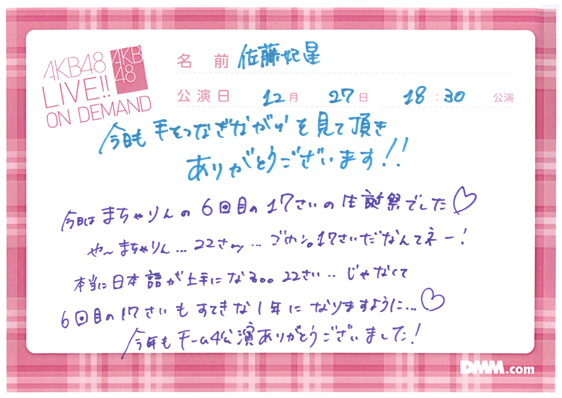 AKB48
LIVE!!
ON DEMAND
AKB
48
名前 佐藤妃星
公演日 12月 27日 18:30 公演
今日も手をつなぎながらを見て頂き
ありがとうございます!!
今日はまちゃりんの6回目の17さいの生誕祭でした♡
や〜まちゃりん...22さぃ...ゴホン。17さいだなんてネー!
本当に日本語が上手になる。。。22さい..じゃなくて
6回目の17さいもすてきな1年になりますように...♡
今年もチーム4公演ありがとうございました!
DMM.com